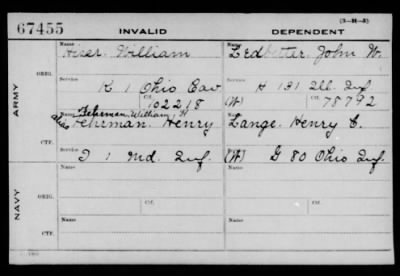 67455 INVALID (3—M—3) DEPENDENT
ARMY
NAVY
ORIG.
CTF.
ORIG.
CTF.
Name William
Name Ledbetter. John W.
Service K 1 Ohio Cav
Service H 131 Ill. Inf
Ctf. 102218
(W) Ctf. 78792
Name Fehrman, William H
alias Fehrman. Henry
Name Lange. Henry C.
Service I 1 Md. Inf.
Service (W) G 80 Ohio Inf.
Ctf.
Ctf.
Name
Name
Service
Service
Ctf.
Ctf.
Name
Name